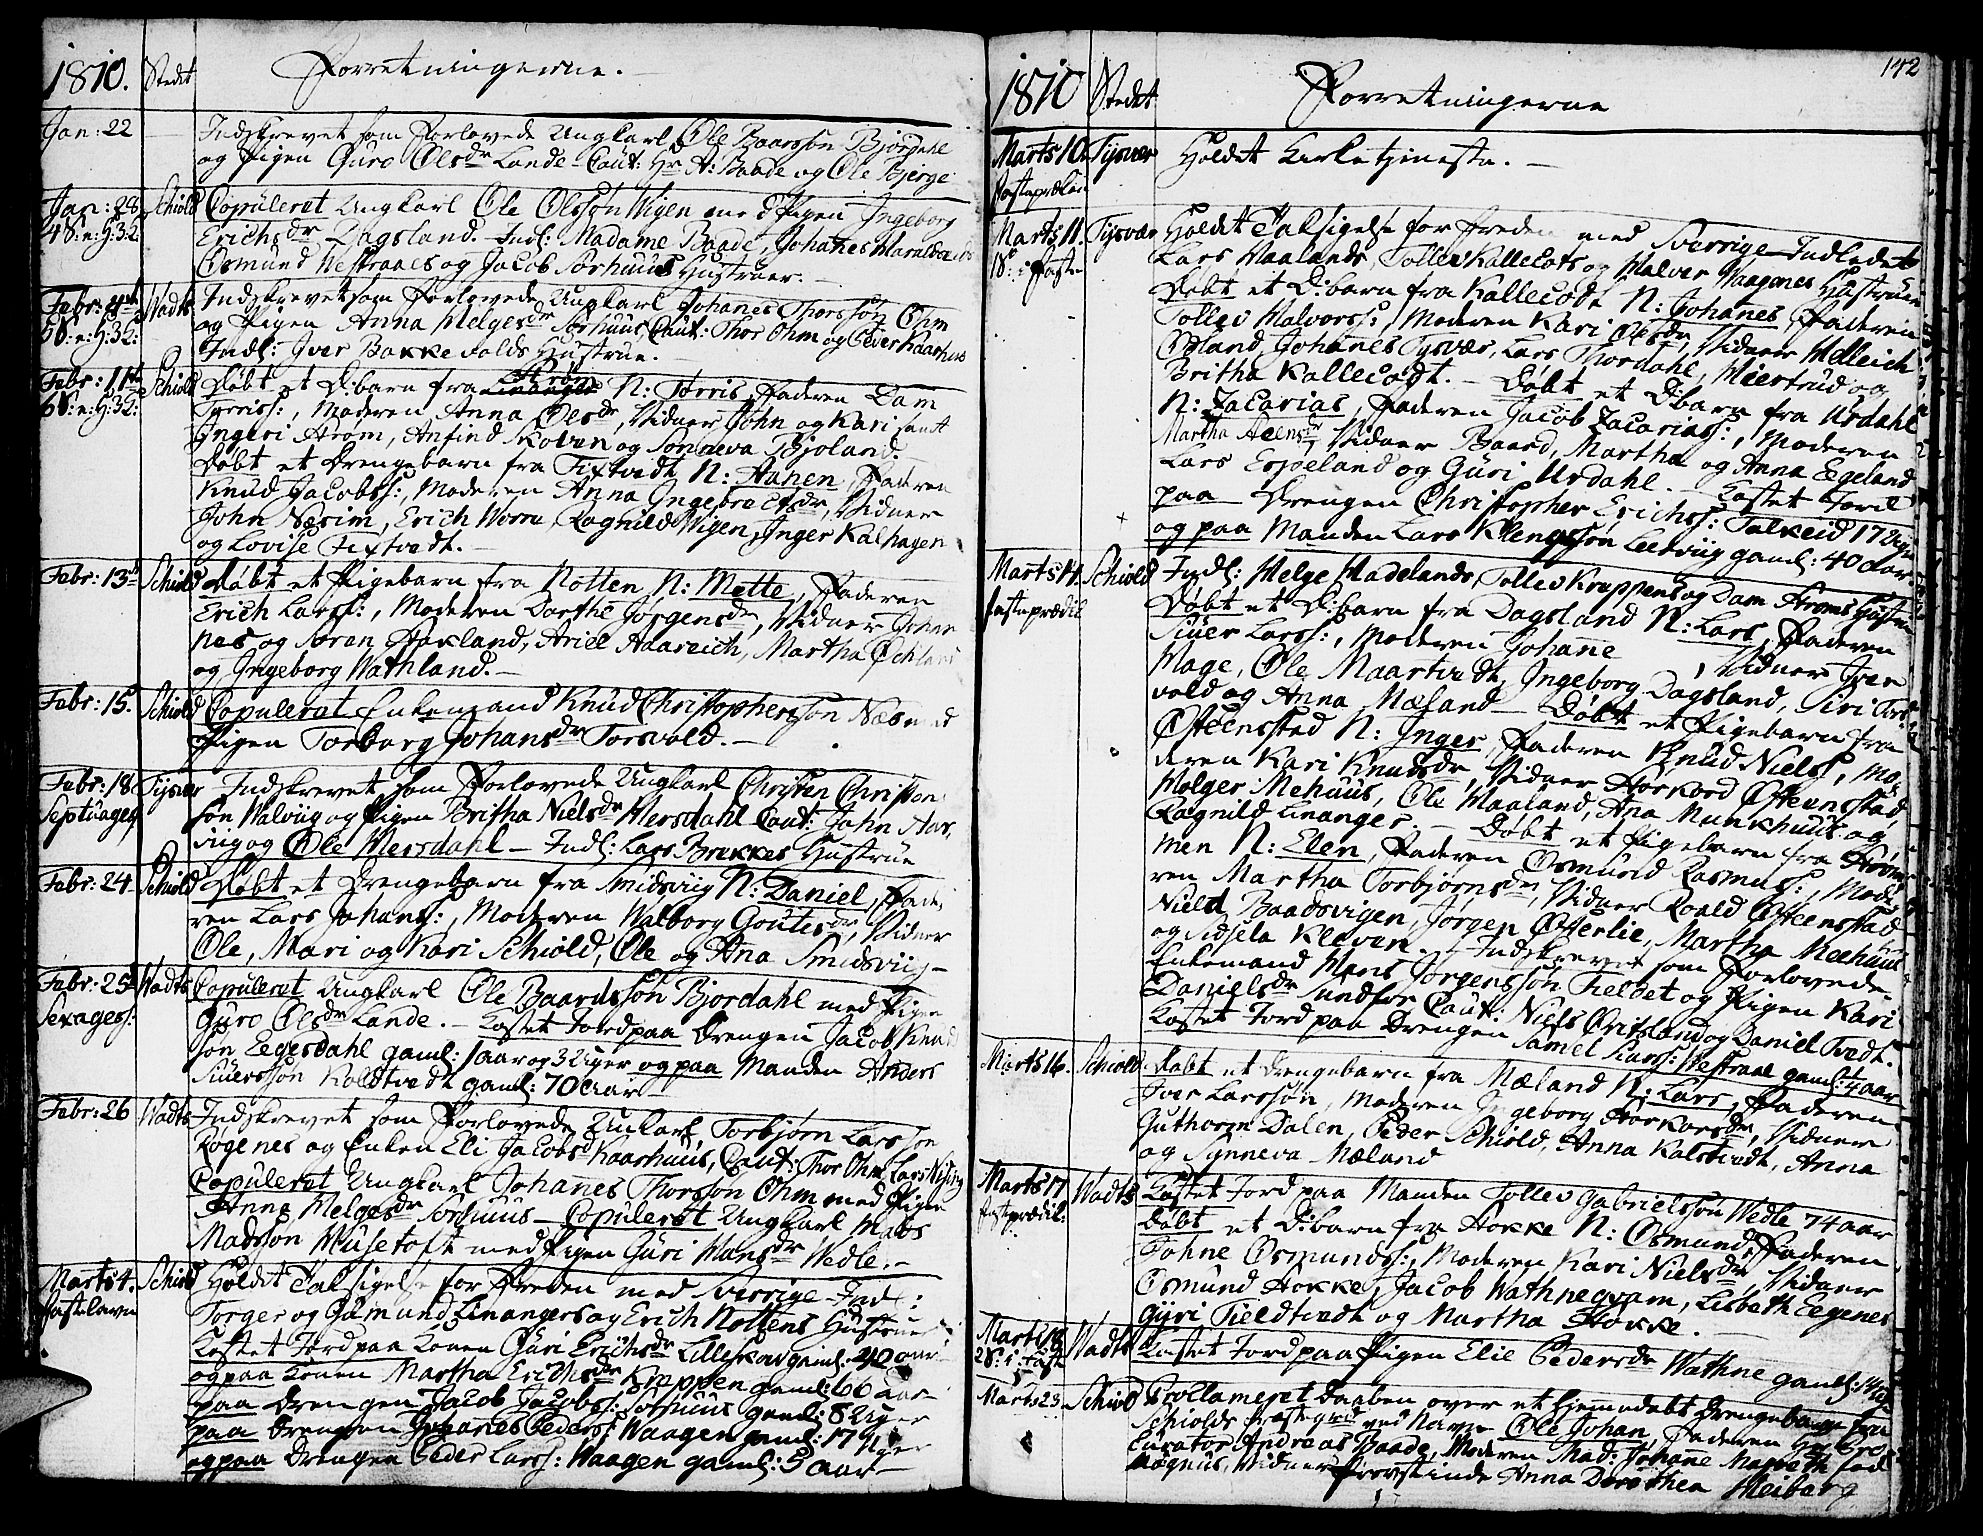 1810. Stedet Forretningerne.
Jan: 22 Indskrevet som Forlovede Ungkarl Ole Baarsson Bjordahl
og Pigen Guro Olsdr Lande Caut: Hr A: Baade og Ole Bjerge
Jan: 28 Schiold Copuleret Ungkarl Ole Olsson Wigen med Pigen Ingeborg
4S: e: H:3K: Erichsdr Dagsland. Indl: Madame Baade, Johanes
Osmund Westraaes og Jacob Sørhuus Hustruer.
Febr: 4de Wadts Indskrevet som Forlovede Ungkarl Johanes Thorsson Ohm
5S: e: H:3K: og Pigen Anna Helgesdr Sørhuus, Caut: Thor Ohm og Peder Kaarhus
Indl: Iver Bakkevolds Hustrue.
Febr: 11te Schiold Døbt et D:barn fra Strøm N: Torris, Faderen Dam
6S: e: H:3K: Torriss:, Moderen Anna Olsdr, Vidner John og Kari samt
Ingeri Strøm, Anfind Skoven og Sønneva Bjoland.
Døbt et Drengebarn fra Tixtvedt N: Hanen, Faderen
Knud Jacobss:, Moderen Anna Ingebretsdr, Vidner
John Næsim, Erich Worre, Ragnild Wigen, Inger Kalhagen
og Lovise Tixtvedt.
Febr: 13de Schiold Døbt et Pigebarn fra Notten N: Mette, Faderen
Erich Larss:, Moderen Dorthe Jørgensdr, Vidner Johan
nes og Søren Stakland, Ariel Haareich, Martha Øchland
og Ingeborg Wathland.
Febr: 15. Schiold Copuleret Enkemand Knud Christophersson Næs med
Pigen Torborg Johansdr Torsvold.
Febr: 18 Tysvær Indskrevet som Forlovede Ungkarl Christen Christen
Septuages: søn Halviig og Pigen Britha Nielsdr Hersdahl Caut: John Aar,
viig og Ole Hersdahl Indl: Lars Brekkes Hustrue
Febr: 24 Schiold Døbt et Drengebarn fra Smidsviig N: Daniel, Fade
ren Lars Johanss:, Moderen Walborg Goutesdr, Vidner
Ole, Mari og Kari Schiold, Ole og Ana Smidsviig
Febr: 25 Wadts Copuleret Ungkarl Ole Baardsson Bjordahl med Pigen
Sexages: Guro Olsdr Lande. Kastet Jord paa Drengen Jacob Knud
søn Eegesdahl gaml: 1 aar og 3 Uger og paa Manden Anders
Siuersson Kolstvedt gaml: 70 Aar
Febr: 26 Wadts Indskrevet som Forlovede Ungkarl Torbjørn Larsson
Røgenes og Enken Eli Jacobsd Kaarhuus, Caut: Thor Ohm, Lars
Copuleret Ungkarl Johanes Thorsson Ohm med Pigen
Anna Helgesdr Sørhuus Copuleret Ungkarl Mads
Madsson Husetoft med Pigen Guri Hansdr Wedle.
Marts 4. Schiold Holdet Taksigelse for Freden med Sverrige Indl:
Fastelavn Torger og Gamund Linangers og Erich Nottens Hustruer
Kastet Jord paa Konen Guri Erichsdr Lilleskov gaml: 40 aar
og paa Konen Martha Erichsdr Krappen gaml: 66 Aar
paa Drengen Jacob Jacobss: Sørhuus gaml: 8 Uger
paa Drengen Johanes Pederss: Waagen gaml: 17 Uger
og paa Drengen Peder Larss: Waagen gaml: 5 aar
142
1810 Stedet Forretningerne
Marts 10. Tysvær Holdet Kirketjineste.
Fasteprækn
Marts 11. Tysvær Holdet Taksigelse for Freden med Sverrige Indledet
1S: i Faste Lars Haalands, Tollev Kallecots og Halver Waagenes Hustruer
Døbt et D:barn fra Kallecodt N: Johanes, Faderen
Tollev Halvorss:, Moderen Kari Olsdr, Vidner Helleich
Opland, Johanes Tysvær, Lars Thordahl, Hiertrud og
Britha Kallecodt. Døbt et D:barn fra Urdahl
N: Zacarias, Faderen Jacob Zacariass:, Moderen
Martha Aensdr, Vidner Baard, Martha og Anna Eegeland
Lars Espeland og Guri Urdahl. Kastet Jord
paa Drengen Christopher Erichss: Falkeid 17 Uger
og paa Manden Lars Klengsson Leerviig gaml: 40 Aar
Marts 14. Schiold Indl: Helge Hadelands, Tollev Krappens og Dam Strøms Hustruer
fasteprædik Døbt et D:barn fra Dagsland N: Lars, Faderen
Siuer Larss:, Moderen Johanne , Vidner Iver
Hage, Ole Maartvedt, Ingeborg Dagsland, Siri Tors
vold og Anna Mæland Døbt et Pigebarn fra
Østeensstad N: Inger, Faderen Knud Nielss:, Mo
deren Kari Knudsdr, Vidner Storkord Østeensstad,
Holger Mehuus, Ole Haaland, Ana Munkhuus og
Ragnild Linanger. Døbt et Pigebarn fra Strøm
men N: Elen, Faderen Osmund Rasmuss:, Mode
ren Martha Torbjørnsdr, Vidner Roald Østeensstad
Nield Baadsvigen, Jørgen Østerlie, Martha Meehuus
og Sidsela Kleven. Indskrevet som Forlovede
Enkemand Mons Jørgensson Fieldet og Pigen Kari
Danielsdr Sundfør Caut: Niels Qvitsland og Daniel Tvedt.
Kastet Jord paa Drengen Samel Larss: Westraae gaml: 4 aar
Marts 16. Schiold Døbt et Drengebarn fra Mæland N: Lars, Faderen
Iver Larssøn, Moderen Ingeborg Storkorsdr, Vidner
Guthorm Dalen, Peder Schiold, Anna Kalstvedt, Anna
og Synneva Mæland
Marts 17 Wadts Kastet Jord paa Manden Tollev Gabrielsson Wedle 74 aar
fastprædik: Døbt et D:barn fra Stokke N: Osmund, Faderen
Johne Osmundss:, Moderen Kari Nielsdr, Vidner
Osmund Stokke, Jacob Wathneqvam, Lisbeth Eegenes
Gyri Fieldtvedt og Martha Stokke.
Marts 18 Wadts Kastet Jord paa Pigen Elie Pedersdr Wathne gaml: 14
2S: i Fast
Marts 23 Schiold Proclameret Daaben over et Hjemedøbt Drengebarn fra
Schiolds Præstegrd ved Navn Ole Johan, Faderen Hr Pro
Curator Andreas Baade, Moderen Mad: Johanne Magreth fød
Magnus, Vidner Provstinde Anna Dorothea Heiberg